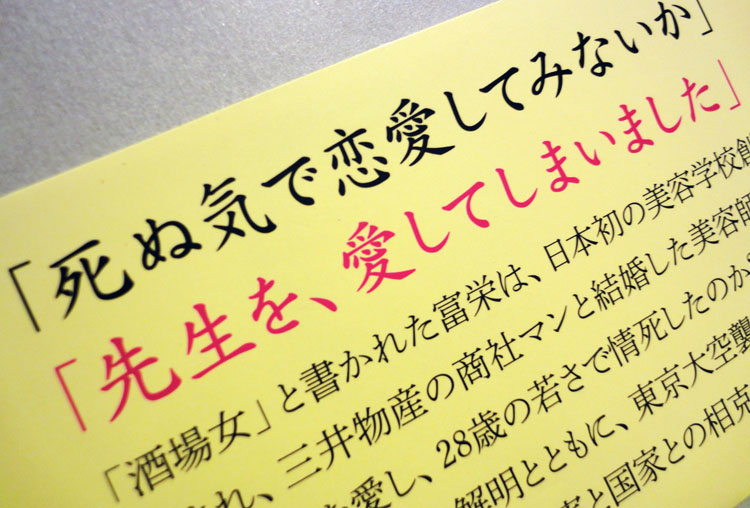 「死ぬ気で恋愛してみないか」
「先生を、愛してしまいました」
「酒場女」と書かれた富栄は、日本初の美容学校創
れ、三井物産の商社マンと結婚した美容師
愛し、28歳の若さで情死したのか
解明とともに、東京大空襲
と国家との相克